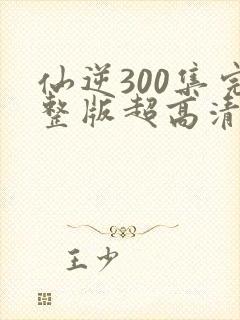 仙逆300集完
整版超高清
王少